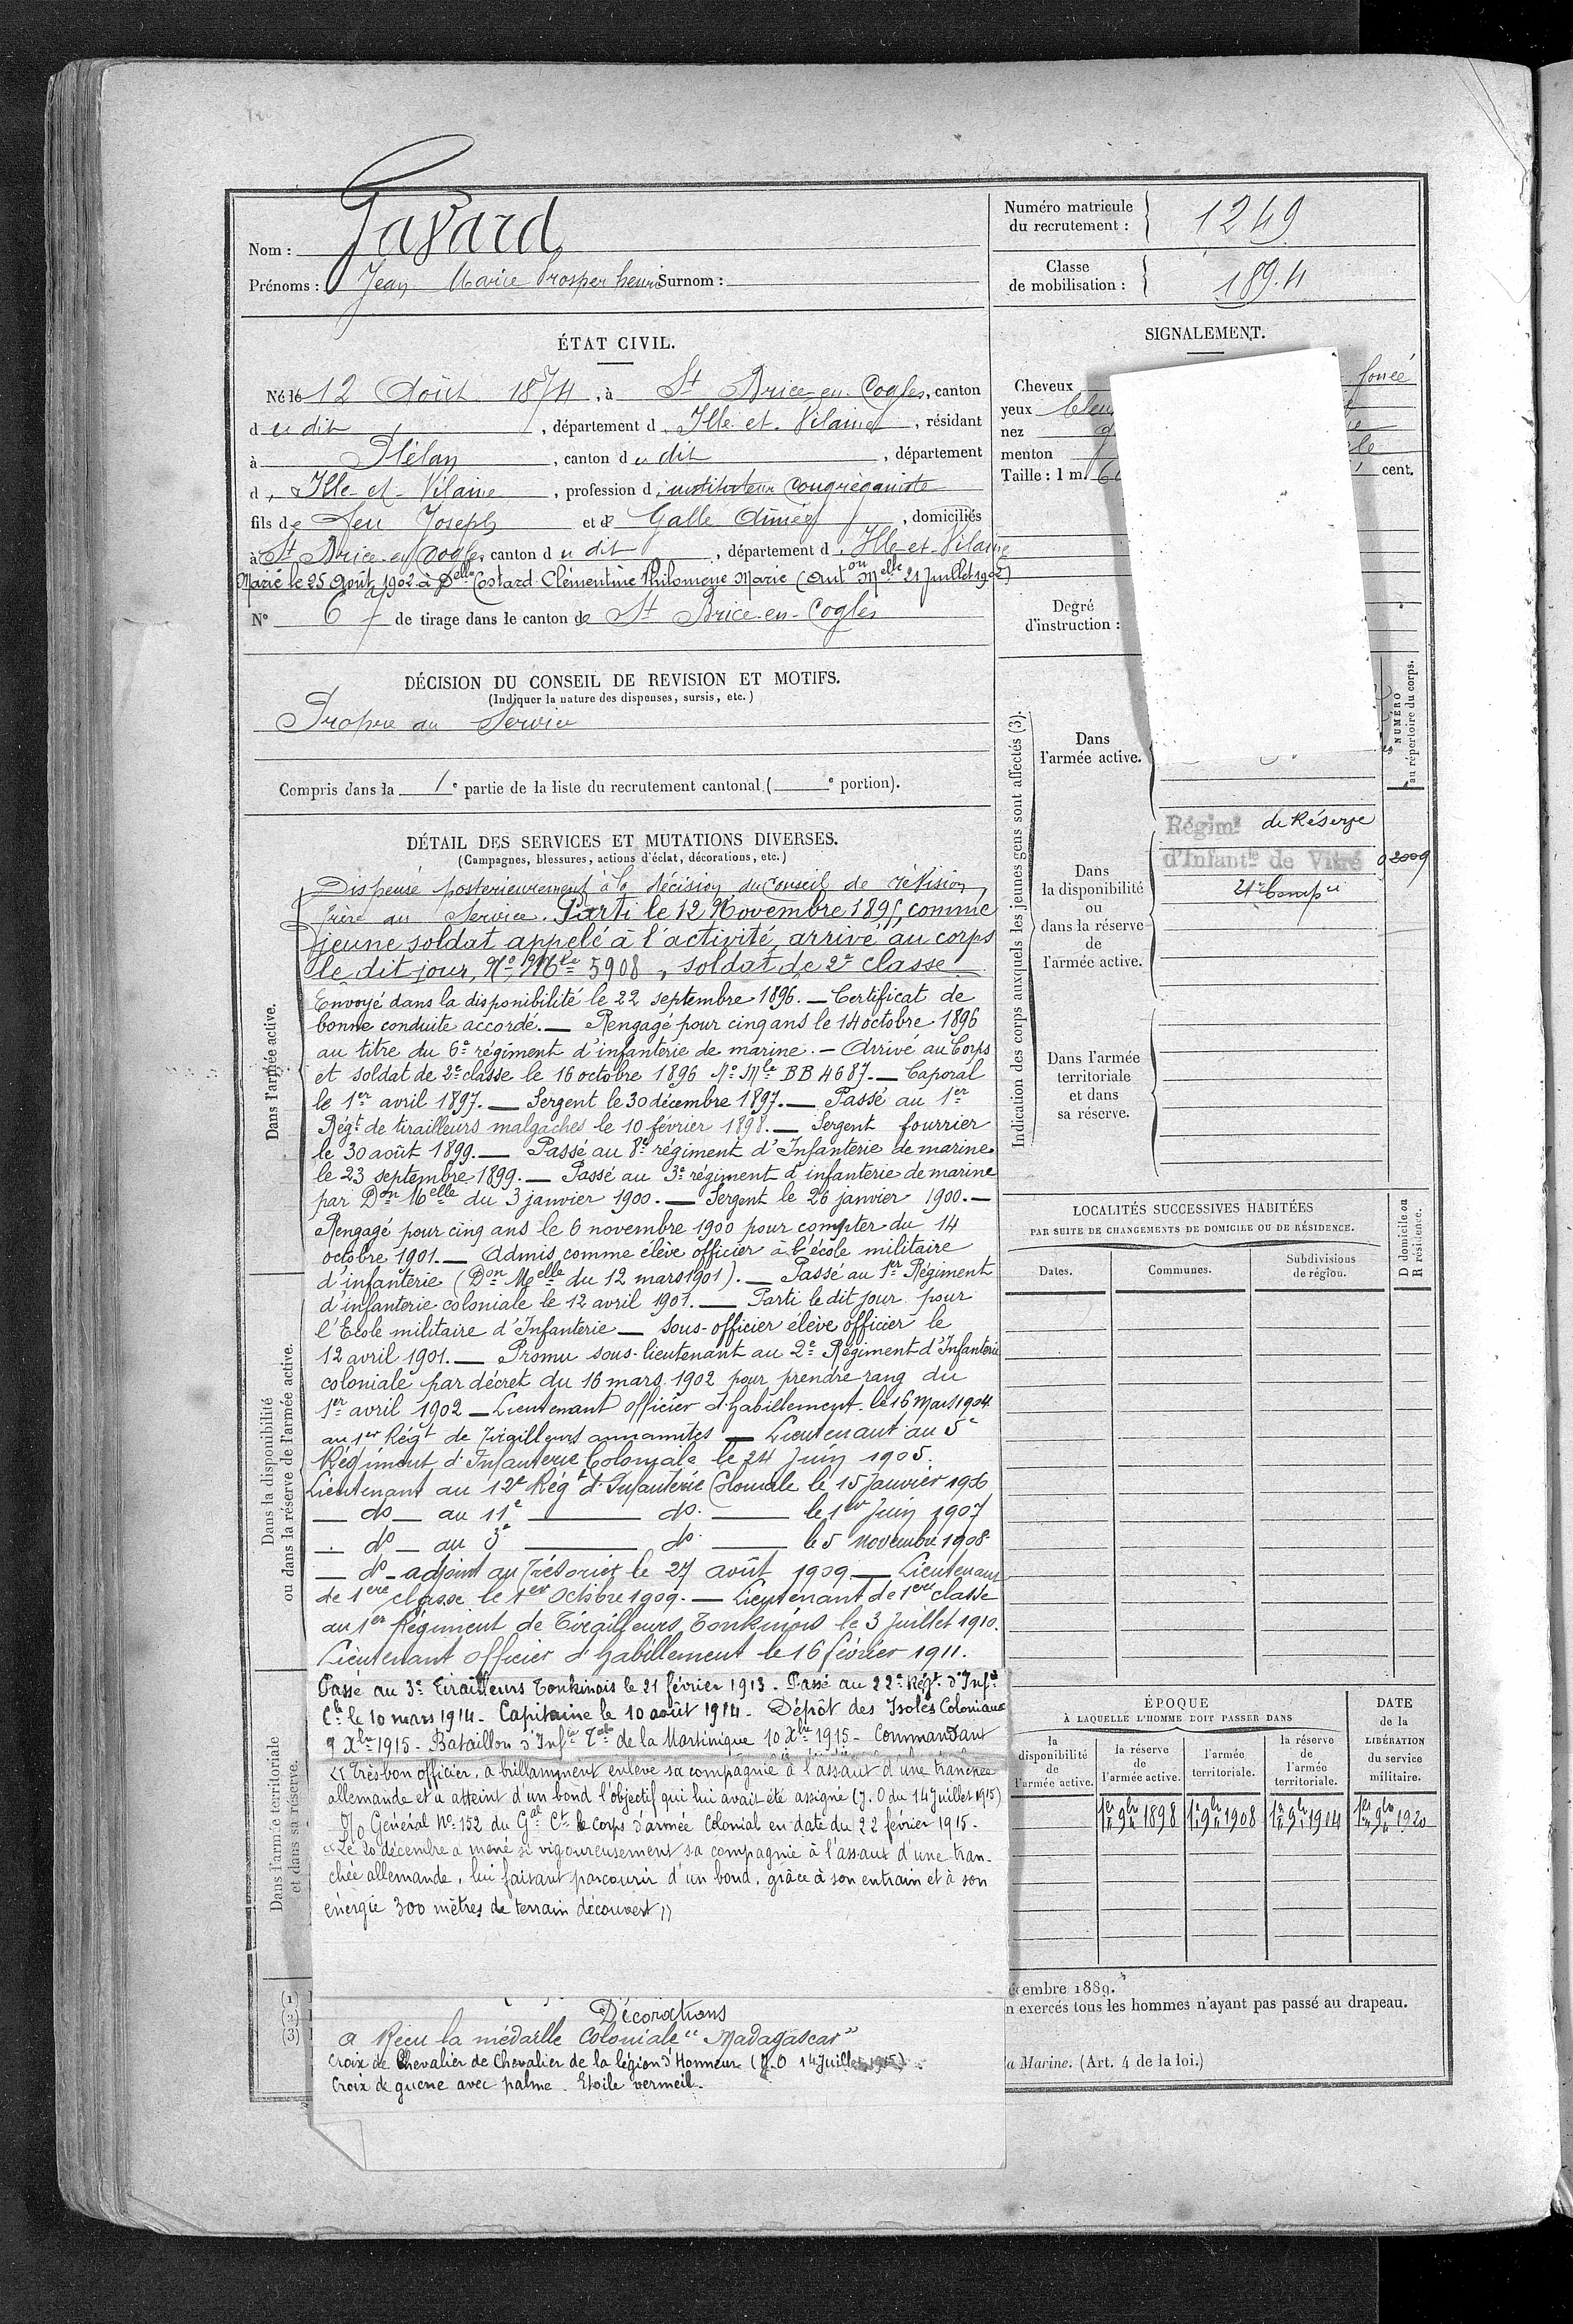 Nom : Gavard
Prénoms : Jean Marie Prosper henri Surnom :
Numéro matricule du recrutement : 1249
Classe de mobilisation : 1894
ÉTAT CIVIL.
Né le 12 Août 1874, à St Brice-en-Cogles, canton
du dit, département d'Ille-et-Vilaine, résidant
à Plélan, canton du dit, département
d'Ille-et-Vilaine, profession d'instituteur Congréganiste
fils de feu Joseph et de Galle Aimée, domiciliés
à St Brice-en-Cogles, canton du dit, département d'Ille-et-Vilaine
Marié le 25 Août 1902 à Delle Costard Clémentine Philomène Marie (Auton Melle 21 Juillet 1902)
N° 67 de tirage dans le canton de St Brice-en-Cogles
DÉCISION DU CONSEIL DE REVISION ET MOTIFS.
(Indiquer la nature des dispenses, sursis, etc.)
Propre au Service
Compris dans la 1e partie de la liste du recrutement cantonal ( e portion).
DÉTAIL DES SERVICES ET MUTATIONS DIVERSES.
(Campagnes, blessures, actions d'éclat, décorations, etc.)
Dans l'armée active.
Dispensé posterieurement à la décision du Conseil de révision,
frère au Service. Parti le 12 Novembre 1895, comme
jeune soldat appelé à l'activité, arrivé au corps
le dit jour, No Mle 5908, soldat de 2e classe
Envoyé dans la disponibilité le 22 septembre 1896. — Certificat de
bonne conduite accordé. — Rengagé pour cinq ans le 14 octobre 1896
au titre du 6e régiment d'infanterie de marine. — Arrivé au Corps
et soldat de 2e classe le 16 octobre 1896 No Mle BB 4687. — Caporal
le 1er avril 1897. — Sergent le 30 décembre 1897. — Passé au 1er
Régt de tirailleurs malgaches le 10 février 1898. — Sergent fourrier
le 30 août 1899. — Passé au 8e régiment d'Infanterie de marine
le 23 septembre 1899. — Passé au 3e régiment d'infanterie de marine
par Don Melle du 3 janvier 1900. — Sergent le 26 janvier 1900. —
Rengagé pour cinq ans le 6 novembre 1900 pour compter du 14
octobre 1901. — Admis comme élève officier à l'école militaire
d'infanterie (Don Melle du 12 mars 1901). — Passé au 1er Régiment
d'infanterie coloniale le 12 avril 1901. — Parti le dit jour pour
l'Ecole militaire d'Infanterie — Sous-officier élève officier le
12 avril 1901. — Promu sous-lieutenant au 2e Régiment d'Infanterie
coloniale par décret du 16 mars 1902 pour prendre rang du
1er avril 1902 — Lieutenant officier d'habillement le 16 Mars 1904
au 1er Régt de Tirailleurs annamites — Lieutenant au 5e
Régiment d'Infanterie Coloniale le 24 Juin 1905.
Lieutenant au 12e Régt d'Infanterie Coloniale le 15 Janvier 1906
— do — au 11e — do. — le 1er Juin 1907
— do — au 3e — do. — le 5 novembre 1908
— do — adjoint au Trésorier le 27 août 1909 — Lieutenant
de 1ere classe le 1er Octobre 1909. — Lieutenant de 1ere classe
au 1er Régiment de Tirailleurs Tonkinois le 3 Juillet 1910.
Lieutenant Officier d'habillement le 16 février 1911.
Passé au 3e Tirailleurs Tonkinois le 21 février 1913. Passé au 22e Régt d'Infie
Cle le 10 mars 1914. Capitaine le 10 août 1914. Dépôt des Isolés Coloniaux
9 Xbre 1915 - Bataillon d'Infie Cale de la Martinique 10 Xbre 1915 - Commandant
« Très bon officier, a brillamment enlevé sa compagnie à l'assaut d'une tranchée
allemande et a atteint d'un bond l'objectif qui lui avait été assigné (J. O du 14 Juillet 1915)
O/o Général No 152 du Gal Ct le Corps d'armée Colonial en date du 22 février 1915.
« Le 20 décembre a mené si vigoureusement sa compagnie à l'assaut d'une tran-
chée allemande, lui faisant parcourir d'un bond, grâce à son entrain et à son
énergie 300 mètres de terrain découvert »
Décorations
a Reçu la médaille Coloniale "Madagascar"
Croix de Chevalier de Chevalier de la légion d'Honneur (J. O 14 Juillet 1915)
Croix de guerre avec palme. Etoile vermeil.
Dans la disponibilité
ou dans la réserve de l'armée active.
Dans l'armée territoriale
et dans sa réserve.
(1)
(2)
(3)
SIGNALEMENT.
Cheveux foncé
yeux bleu
nez
menton
Taille : 1 m. 6 cent.
Degré d'instruction :
Indication des corps auxquels les jeunes gens sont affectés (3).
NUMÉRO au répertoire du corps.
Dans l'armée active.
Dans la disponibilité ou dans la réserve de l'armée active.
Régimt de Réserve
d'Infantie de Vitré 02009
21e Compie
Dans l'armée territoriale et dans sa réserve.
LOCALITÉS SUCCESSIVES HABITÉES
PAR SUITE DE CHANGEMENTS DE DOMICILE OU DE RÉSIDENCE.
Dates.
Communes.
Subdivisions de région.
D domicile ou R résidence.
ÉPOQUE
À LAQUELLE L'HOMME DOIT PASSER DANS
la disponibilité de l'armée active.
la réserve de l'armée active.
l'armée territoriale.
la réserve de l'armée territoriale.
DATE de la LIBÉRATION du service militaire.
1er 9bre 1898 1er 9bre 1908 1er 9bre 1914 1er 9bre 1920
écembre 1889.
n exercés tous les hommes n'ayant pas passé au drapeau.
a Marine. (Art. 4 de la loi.)